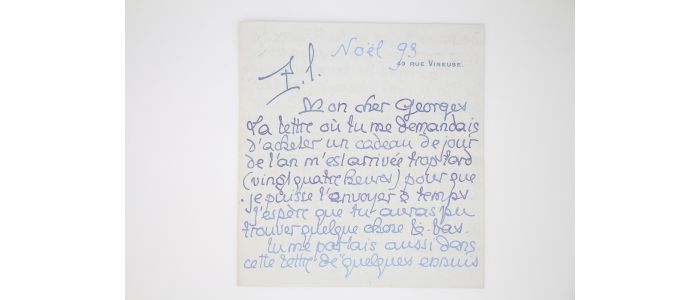 Noël 93
49 RUE VINEUSE.
Mon cher Georges
Ta lettre où tu me demandais
d'acheter un cadeau de jour
de l'an m'est arrivée trop tard
(vingt quatre heures) pour que
je puisse l'envoyer à temps.
J'espère que tu auras pu
trouver quelque chose là-bas.
Tu me parlais aussi dans
cette lettre de quelques ennuis